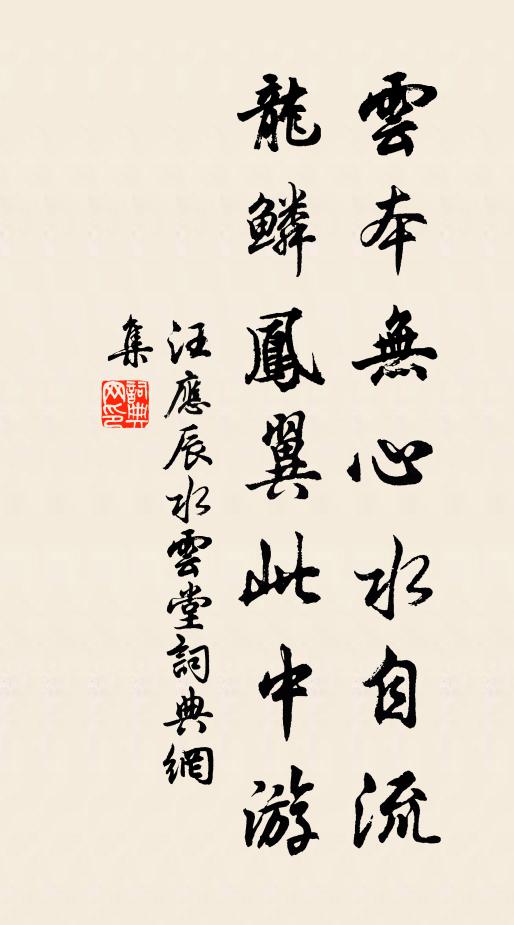 雲本無心水自流
龍鱗鳳翼此中游
汪應辰水雲堂詞典網
集
詞典
网印